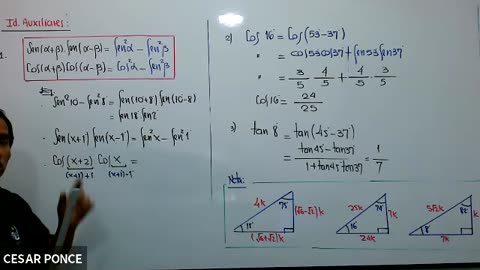 Id. Auxiliares:
1.
Sen(α+β).Sen(α-β) = Sen²α - Sen²β
Cos(α+β)Cos(α-β) = Cos²α - Sen²β
Ej.
· Sen²10 - Sen²8 = Sen(10+8) Sen(10-8)
= Sen18.Sen2
· Sen(x+1) Sen(x-1) = Sen²x - Sen²1
· Cos(x+2) Cos x =
(x+1)+1 (x+1)-1
2) Cos 16 = Cos(53-37)
" = Cos53Cos37 + Sen53Sen37
" = 3/5 . 4/5 + 4/5 . 3/5
Cos16 = 24/25
3) tan 8 = tan(45-37)
= tan45 - tan37 / 1+tan45 tan37 = 1/7
Nota:
4k 75° (√6-√2)k 15° (√6+√2)k
25k 74° 7k 16 24k
5√2k 82° k 8 7k
CESAR PONCE